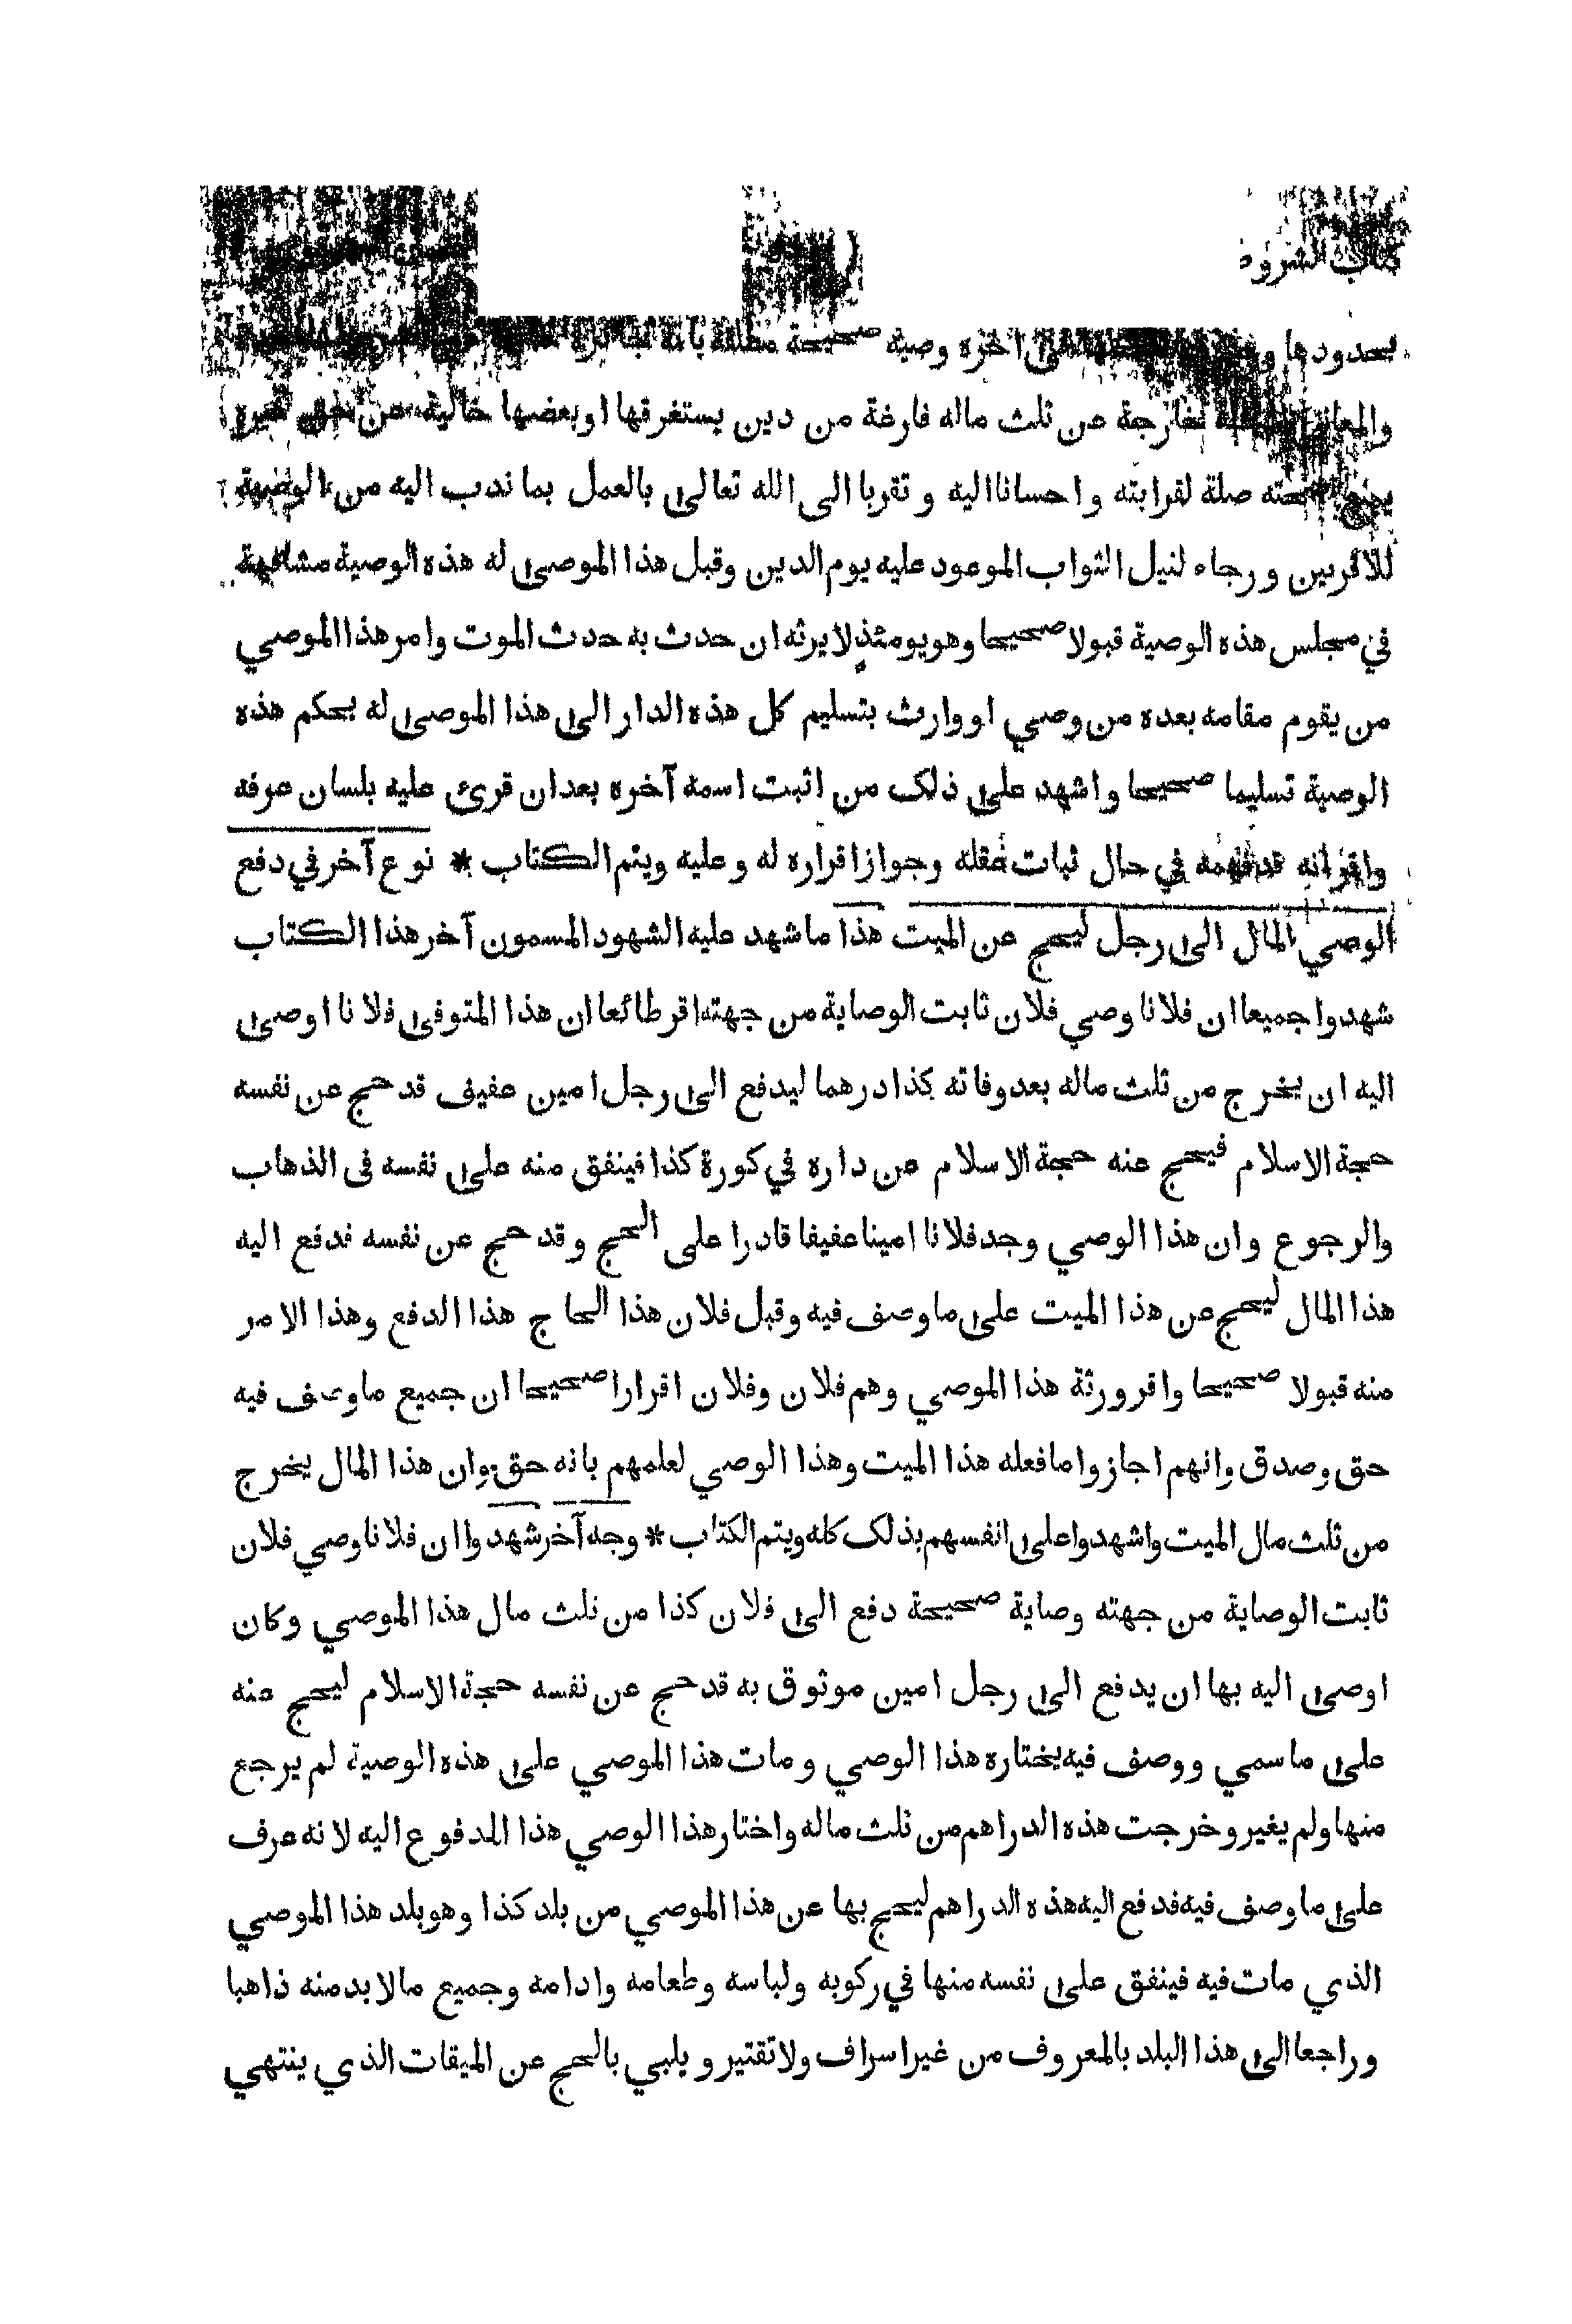 كتاب الشروط
بحدودها الى آخره وصية صحيحة مطلقة باتة
خارجة من ثلث ماله فارغة من دين يستغرقها او بعضها خالية من
صلة لقرابته واحسانا اليه وتقربا الى الله تعالى بالعمل بما ندب اليه من الوصية
للاقربين ورجاء لنيل الثواب الموعود عليه يوم الدين وقبل هذا الموصى له هذه الوصية مشافهة
في مجلس هذه الوصية قبولا صحيحا وهو يومئذ لا يرثه ان حدث به حدث الموت وامر هذا الموصي
من يقوم مقامه بعده من وصي او وارث بتسليم كل هذه الدار الى هذا الموصى له بحكم هذه
الوصية تسليما صحيحا واشهد على ذلك من اثبت اسمه آخره بعد ان قرئ عليه بلسان عرفه
واقر انه قد فهمه في حال ثبات عقله وجواز اقراره له وعليه ويتم الكتاب * نوع آخر في دفع
الوصي المال الى رجل ليحج عن الميت هذا ما شهد عليه الشهود المسمون آخر هذا الكتاب
شهدوا جميعا ان فلانا وصي فلان ثابت الوصاية من جهته اقر طائعا ان هذا المتوفى فلانا اوصى
اليه ان يخرج من ثلث ماله بعد وفاته كذا درهما ليدفع الى رجل امين عفيف قد حج عن نفسه
حجة الاسلام فيحج عنه حجة الاسلام من داره في كورة كذا فينفق منه على نفسه فى الذهاب
والرجوع وان هذا الوصي وجد فلانا امينا عفيفا قادرا على الحج وقد حج عن نفسه فدفع اليه
هذا المال ليحج عن هذا الميت على ما وصف فيه وقبل فلان هذا الحاج هذا الدفع وهذا الامر
منه قبولا صحيحا واقر ورثة هذا الموصي وهم فلان وفلان اقرارا صحيحا ان جميع ما وصف فيه
حق وصدق وانهم اجازوا ما فعله هذا الميت وهذا الوصي لعلمهم بانه حق وان هذا المال يخرج
من ثلث مال الميت واشهدوا على انفسهم بذلك كله ويتم الكتاب * وجه آخر شهدوا ان فلانا وصي فلان
ثابت الوصاية من جهته وصاية صحيحة دفع الى فلان كذا من ثلث مال هذا الموصي وكان
اوصى اليه بها ان يدفع الى رجل امين موثوق به قد حج عن نفسه حجة الاسلام ليحج عنه
على ما سمي ووصف فيه يختاره هذا الوصي ومات هذا الموصي على هذه الوصية لم يرجع
منها ولم يغير وخرجت هذه الدراهم من ثلث ماله واختار هذا الوصي هذا المدفوع اليه لانه عرف
على ما وصف فيه فدفع اليه هذه الدراهم ليحج بها عن هذا الموصي من بلد كذا وهو بلد هذا الموصي
الذي مات فيه فينفق على نفسه منها في ركوبه ولباسه وطعامه وادامه وجميع مالا بد منه ذاهبا
وراجعا الى هذا البلد بالمعروف من غير اسراف ولا تقتير ويلبي بالحج عن الميقات الذي ينتهي